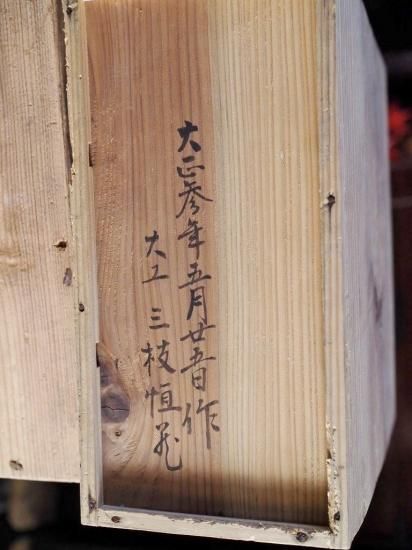 大正参年五月廿五日作
大工 三枝恒